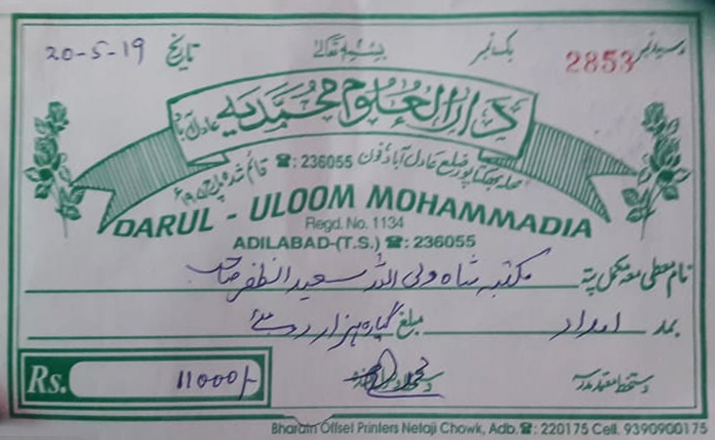 رسید نمبر 2853 بک نمبر بسمہٖ تعالیٰ تاریخ 20-5-19
دارالعلوم محمدیہ عادل آباد
محلہ بھکتاپور ضلع عادل آباد فون ☎: 236055 قائم شدہ
DARUL - ULOOM MOHAMMADIA
Regd. No. 1134
ADILABAD-(T.S.) ☎: 236055
نام معطی معہ مکمل پتہ مکتبہ شاہ ولی اللہ سعید الظفر صاحب
بمد امداد مبلغ گیارہ ہزار روپئے
Rs. 11000/-
دستخط معتمد مدرسہ
Bharath Offset Printers Netaji Chowk, Adb.☎: 220175 Cell. 9390900175